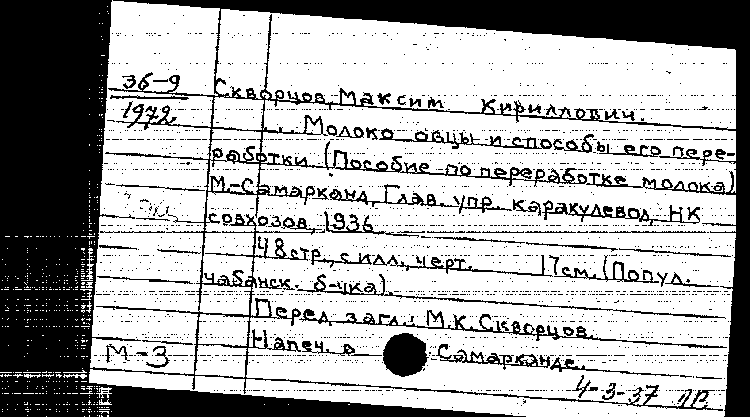 36-9
1972
Скворцов, Максим Кириллович.
... Молоко овцы и способы его пере-
работки. (Пособие по переработке молока)
М.-Самарканд, Глав. упр. каракулевод. НК
совхозов, 1936
48 стр., с илл., черт. 17 см. (Попул.
чабанск. б-чка).
Перед загл.: М.К. Скворцов.
Напеч. в Самарканде.
М-3
4-3-37 ЛВ